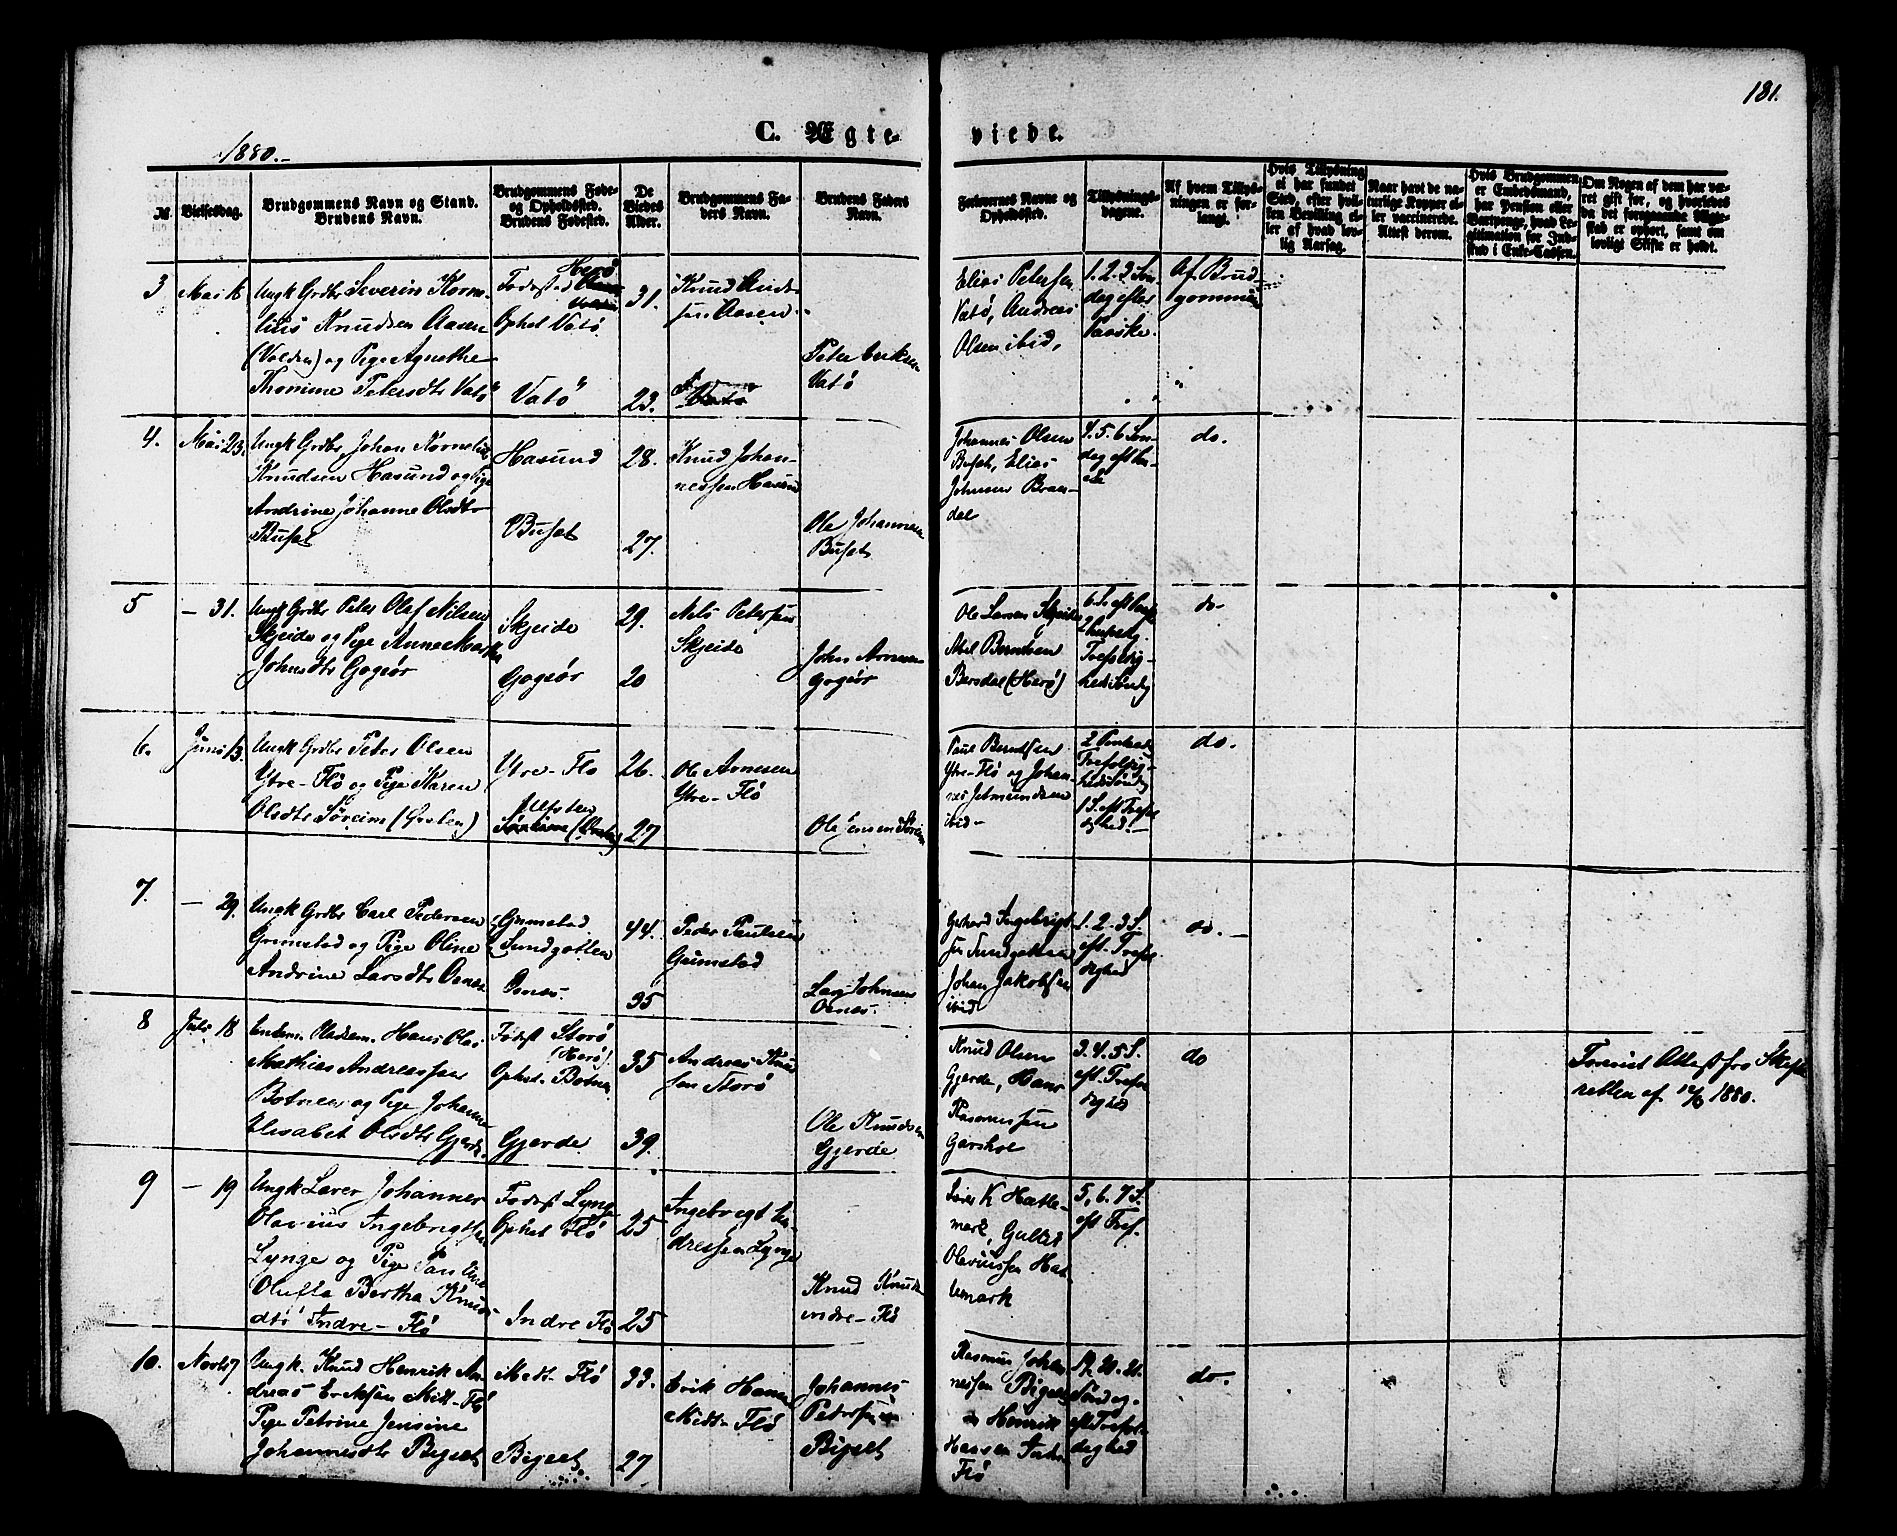 181.
C. Ægte-
viede.
1880.-
№
Vielsesdag.
Brudgommens Navn og Stand.
Brudens Navn.
Brudgommens Føde-
og Opholdssted.
Brudens Fødested.
De
Viedes
Alder.
Brudgommens Fa-
ders Navn.
Brudens Faders
Navn.
Forlovernes Navne og
Opholdssted.
Tillysnings-
dagene.
Af hvem Tillys-
ningen er for-
langt.
Hvis Tillysning
ei har fundet
Sted, efter hvil-
ken Bevilling el-
ler af hvad lov-
lig Aarsag.
Naar havt de na-
turlige Kopper el-
ler vaccinerede.
Attest derom.
Hvis Brudgommen
er Embedsmand,
har Pension eller
Vartpenge, hvad Le-
gitimation for Ind-
skud i Enke-Cassen.
Om Nogen af dem har væ-
ret gift før, og hvorledes
da det foregaaende Ægte-
skab er ophørt, samt om
lovligt Skifte er holdt.
3
Mai 16
Ungk Grdbr Severin Korne-
lius Knudsen Aasen
(Volden) og Pige Agnethe
Thomine Petersdtr Vatø
Herø
Fødested
Ophst Vatø
Vatø
31.
23.
Knud Andr-
sen Aasen
Peter Eriksen
Vatø
Elias Petersen
Vatø, Andreas
Olsen ibid,
1. 2. 3 Søn-
dag efter
Paaske.
Af Brud-
gommen
4.
Mai 23.
Ungk Grdbr Johan Kornelius
Knudsen Hasund og Pige
Andrine Johanne Olsdtr
Busæt
Hasund
Busæt
28.
27.
Knud Johan-
nessen Hasund
Ole Johannesen
Busæt
Johannes Olsen
Busæt, Elias
Johnsen Bran-
dal
4. 5. 6 Søn-
dag eft Paa-
ske
do.
5
- 31.
Ungk Grdbr Peter Olaf Nilsen
Skjeide og Pige Anne Martha
Johnsdtr Gogsør
Skjeide
Gogsør
29.
20
Nils Petersen
Skjeide
John Arnesen
Gogsør
Ole Larsen Skjeide
Abel Berntsen
Bersdal (Herø)
6. S. eft Paaske
2 Pintsedg.
Trefoldig-
hedssøndg
do.
6.
Juni 13.
Ungk Grdbr Peter Olsen
Ytre-Flø og Pige Karen
Olsdtr Søreim (Ørsten)
Ytre-Flø
26.
27
Ole Arnesen
Ytre-Flø
Ole Jensen Søreim
Paul Berntsen
Ytre-Flø og Johan-
nes Jetmundsen
ibid-
2 Pintsedg
Trefoldig-
hedssøndg
1 S. eft Trefol-
dighed.
do.
7.
- 29.
Ungk Grdbr Carl Pedersen
Grimstad og Pige Oline
Andrine Larsdtr Osnes
Grimstad
Sundgotten
Osnes.
44.
35
Peder Paulsen
Grimstad
Lars Johnsen
Osnes.
Gerhard Ingebrigt-
sen Sundgotten
Johan Jakobsen
ibid
1. 2. 3 S.
eft. Trefol-
dighed
do. -
8
Juli 18
Enkem. Pladsem. Hans Olai
Mathias Andreassen
Botnen og Pige Johanne
Elisabet Olsdtr Gjerde
Fødest Storø
(Herø)
Ophst. Botnen
Gjerde
35
39.
Andreas Knud-
sen Storø
Ole Knudsen
Gjerde
Knud Olsen
Gjerde, Hans
Rasmussen
Garshol
3. 4. 5 S.
eft. Trefol-
dighed
do
Forevist Attest fra Skifte-
retten af 12/6 1880.
9
- 19
Ungk Laver Johannes
Olavius Ingebrigtsen
Lynge og Pige Pauline
Olufta Bertha Knuds-
dtr Indre-Flø
Fødest Lynge
Ophst Flø
Indre Flø
25
25
Ingebrigt An-
dressen Lynge
Knud Knudsen
indre-Flø
Iver K Hatle-
mark, Gullik
Olavussen Hat-
lemark
5, 6. 7 S.
eft Tref.
10.
Novbr 7
Ungk. Knud Henrik An-
dreas Eriksen Midt-Flø
Pige Petrine Jensine
Johannesdtr Bigset
Midt-Flø
Bigset
33.
27
Erik Hansen
Midt-Flø
Johannes
Petersen
Bigset
Rasmus Johan-
nessen Bigset
og Henrik
Hansen
Flø
19. 20. 21.
Søndag
eft Trefol-
dighed
do.